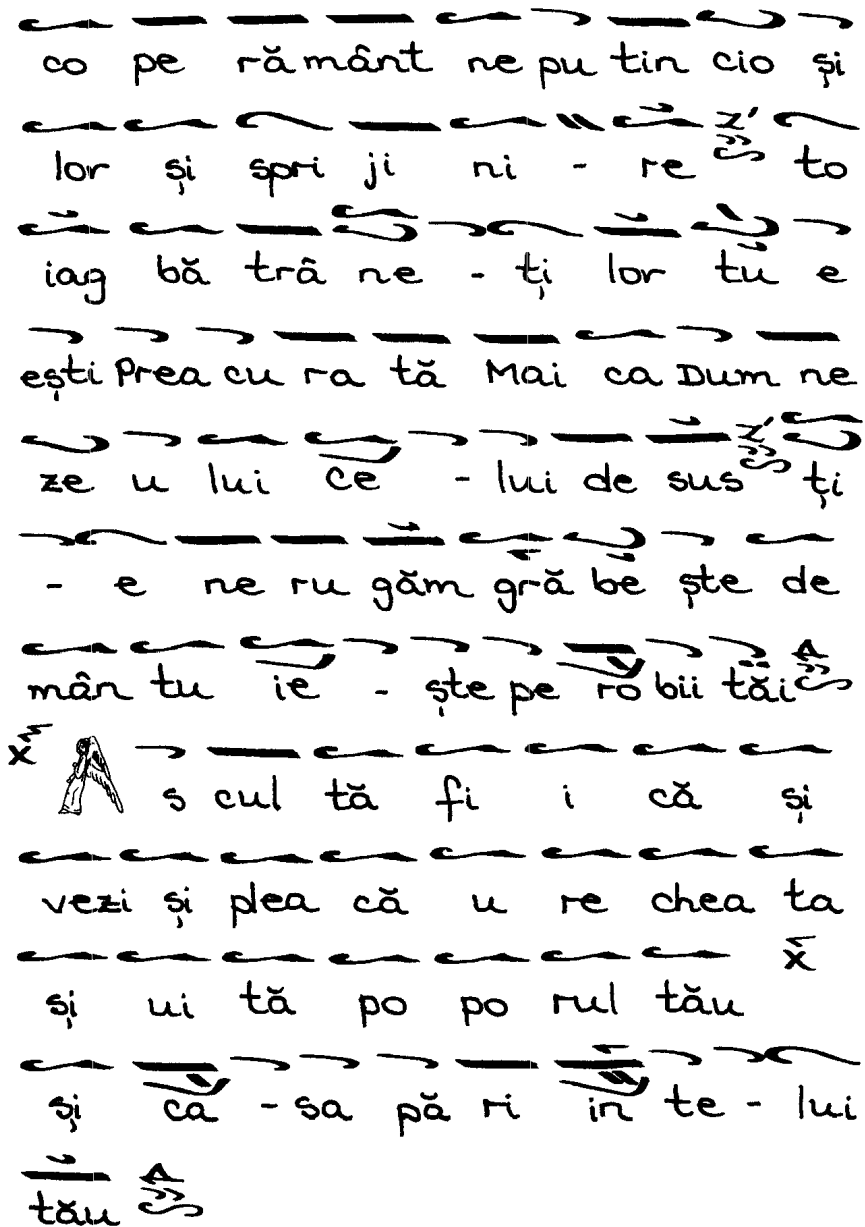 co pe ră mânt ne pu tin cio și
lor și spri ji ni - re to
iag bă trâ ne - ți lor tu e
ești Prea cu ra tă Mai ca Dum ne
ze u lui ce - lui de sus ți
- e ne ru găm gră be ște de
mân tu ie - ște pe ro bii tăi
A s cul tă fi i că și
vezi și plea că u re chea ta
și ui tă po po rul tău
și ca - sa pă ri in te - lui
tău